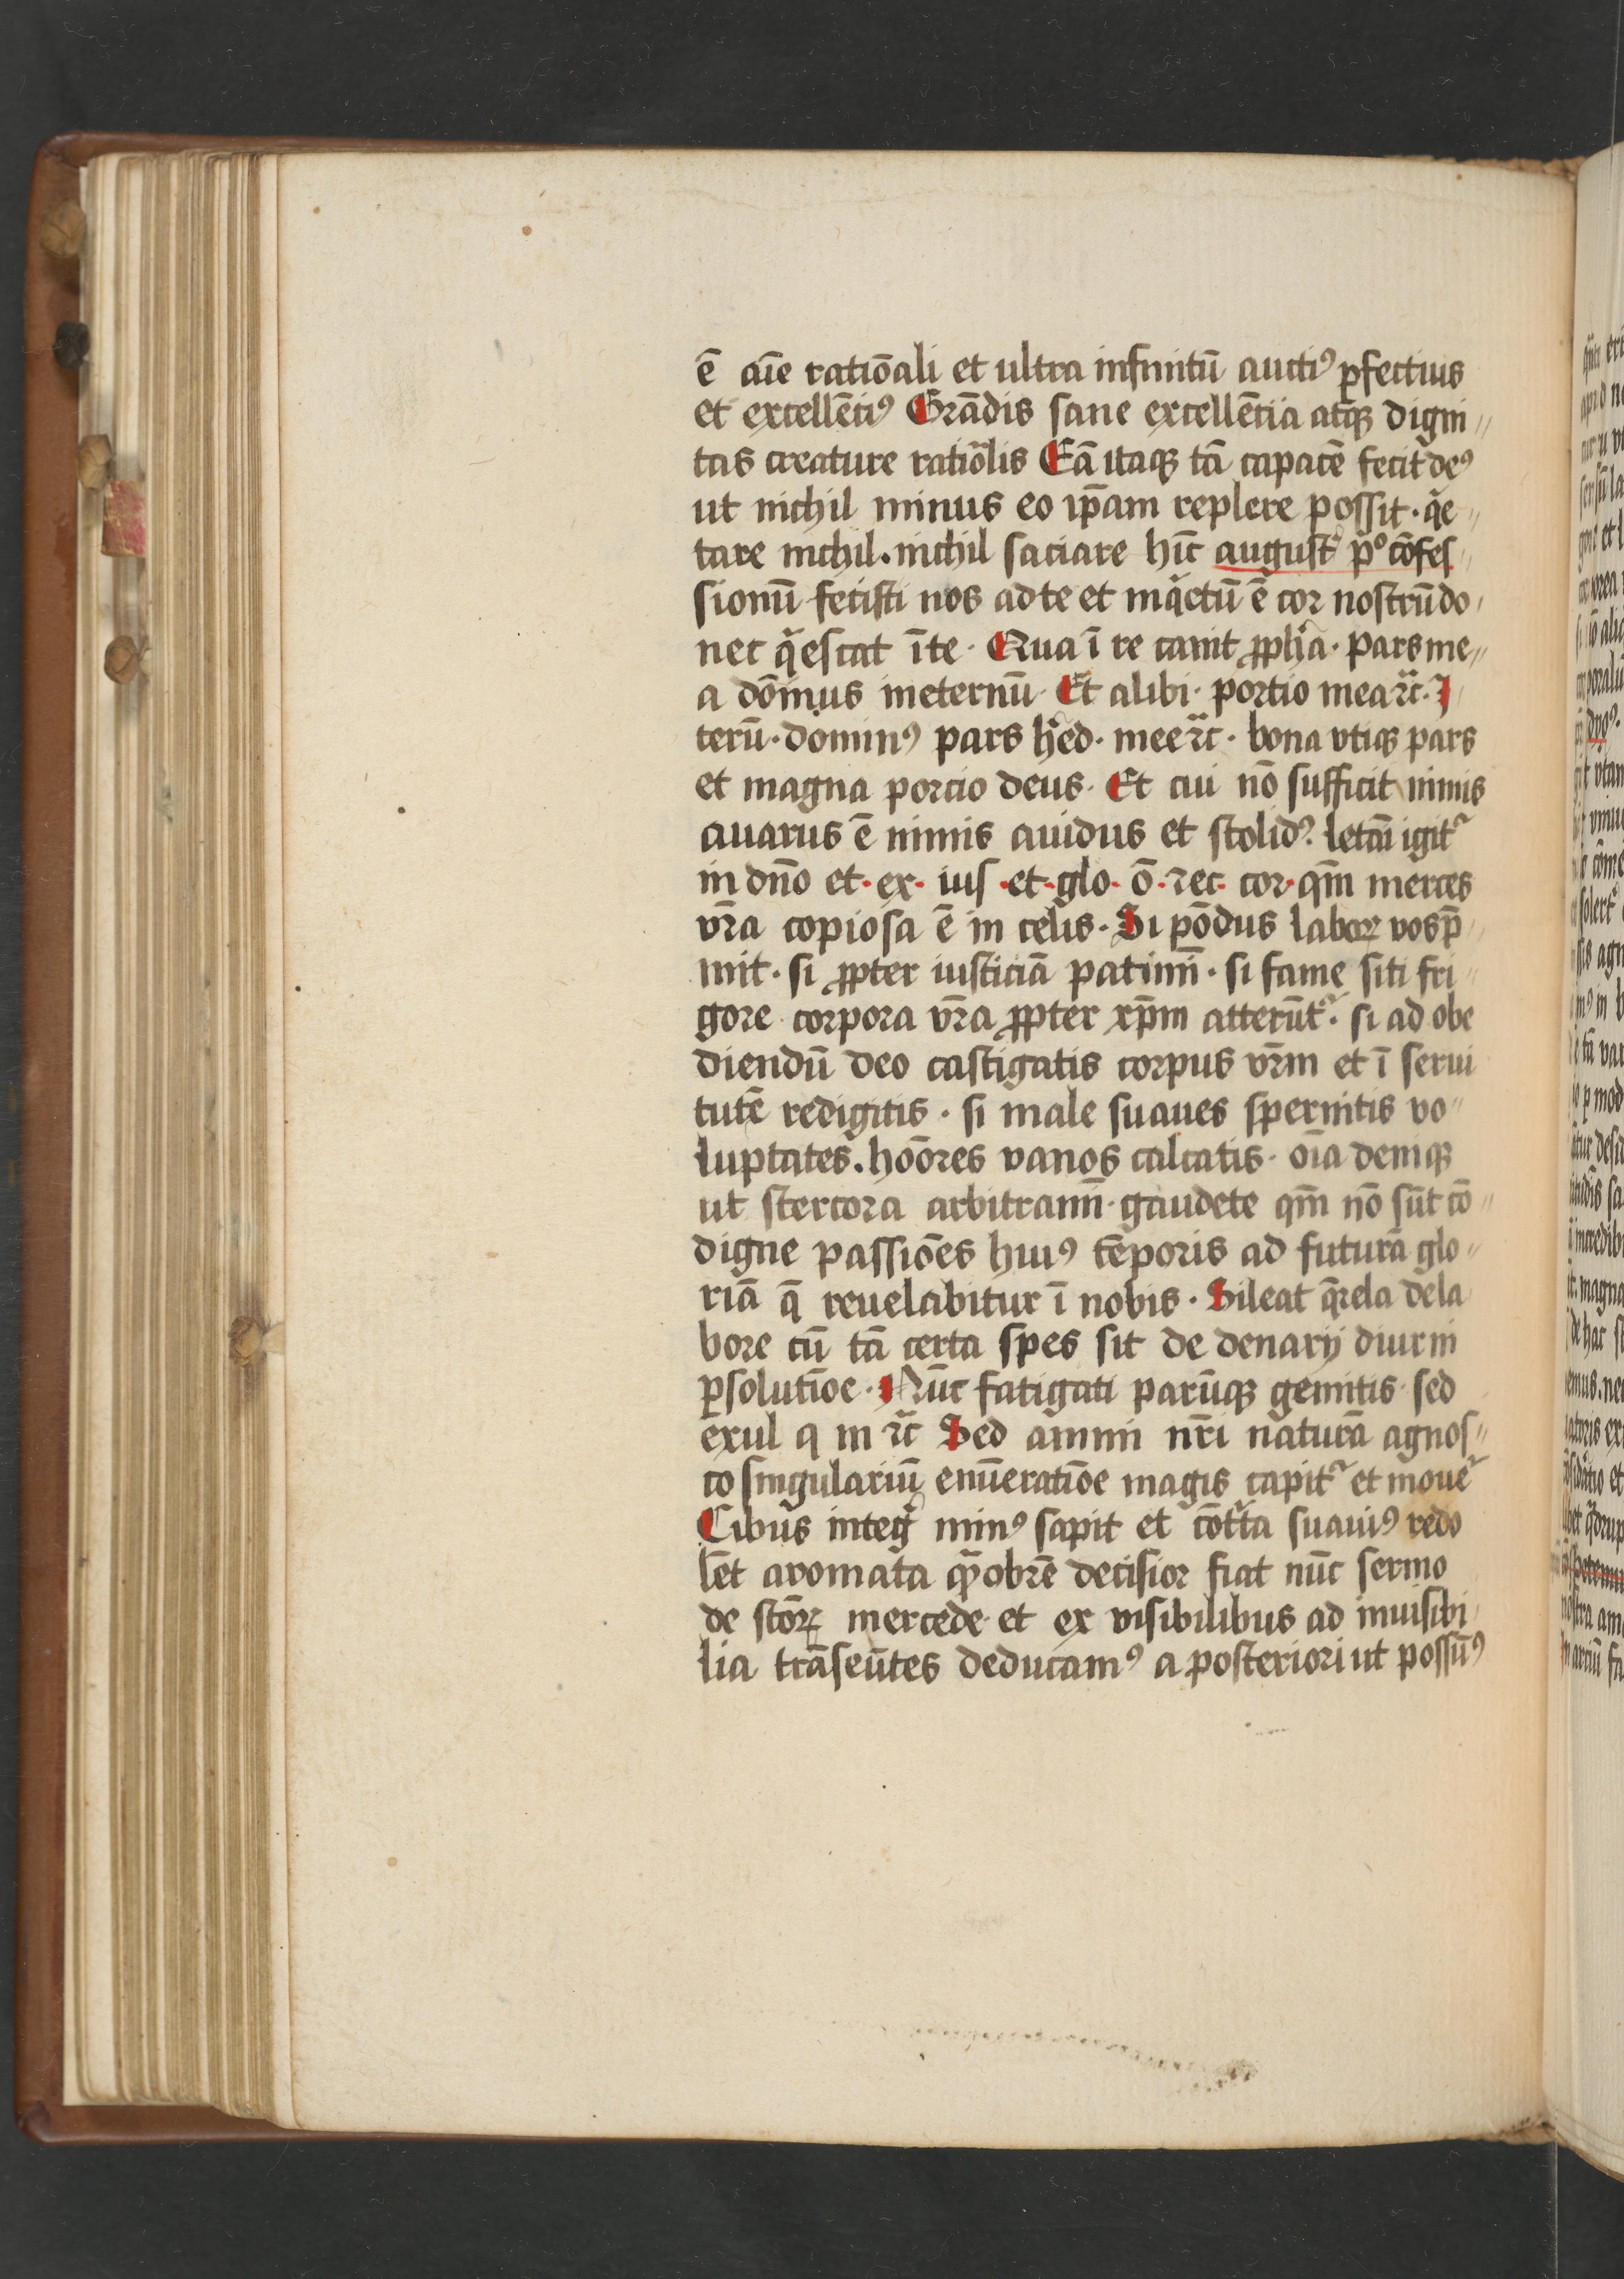 ē aīe ratiōali et ultra infinitū aucti⁹ ꝑfectius
et excellēti⁹ Grādis sane excellētia atqꝫ digni〃
tas creature ratiōalis Eā itaqꝫ tā capacē fecit de⁹
ut nichil minus eo ip̄am replere possit · q̄e〃
tare nichil · nichil saciare hīc august̄ p̄º cōfes
sionū fecisti nos ad te et inq̄etū ē cor nostrū do〃
nec q̄escat ī te · Qua ī re canit ꝓph̄a · Pars me〃
a dōminus in eternū · Et alibi · portio mea ⁊c̄ · I
terū · domin⁹ pars h̄ed · mee ⁊c̄ · bona vtiqꝫ pars
et magna porcio deus · Et cui nō sufficit nimis
auarus ē nimis auidus et stolid⁹ · letam̄ igit᷑
in dn̄o et · ex · ius · et · glo · o · rec · cor · qm̄ merces
vr̄a copiosa ē in celis · Si pōdus laboꝝ vos p̄
mit · si ꝓpter iusticiā patimī · si fame siti fri〃
gore corpora vr̄a ꝓpter xp̄m atterūt᷑ · si ad obe
diendū deo castigatis corpus vr̄m et ī serui
tutē redigitis · si male suaues spernitis vo〃
luptates · hoōres vanos calcatis · oīa deniqꝫ
ut stercora arbitramī · gaudete qm̄ nō sūt cō〃
digne passiōes hui⁹ tēporis ad futurā glo〃
riā q̄ reuelabitur ī nobis · Sileat q̄rela de la
bore cū tā certa spes sit de denarij diurni
ꝑsolutiōe · Nūc fatigati parūqꝫ gemitis · sed
exul q in ⁊c̄ Sed animi nr̄i naturā agnos〃
co singulariū enūeratiōe magis capit᷑ et moue᷑
Cibus integ̉ min⁹ sapit et cōt̄ta suaui⁹ redo
lēt aromata qͣobrē decisior fiat nūc sermo
de sc̄oꝝ mercede · et ex visibilibus ad inuisibi
lia trāseūtes deducam⁹ a posteriori ut possū⁹